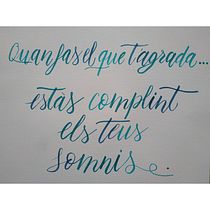 Quan fas el que t'agrada...
estàs complint
els teus
somnis.